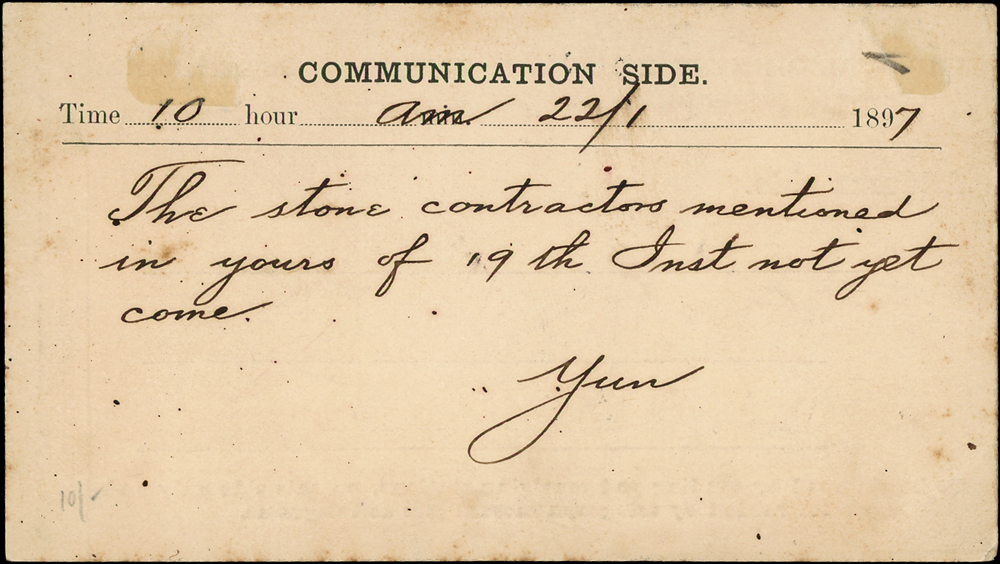 COMMUNICATION SIDE.
Time 10 hour am 22/1 1897
The stone contractors mentioned
in yours of 19th Inst not yet
come.
Yun
10/-